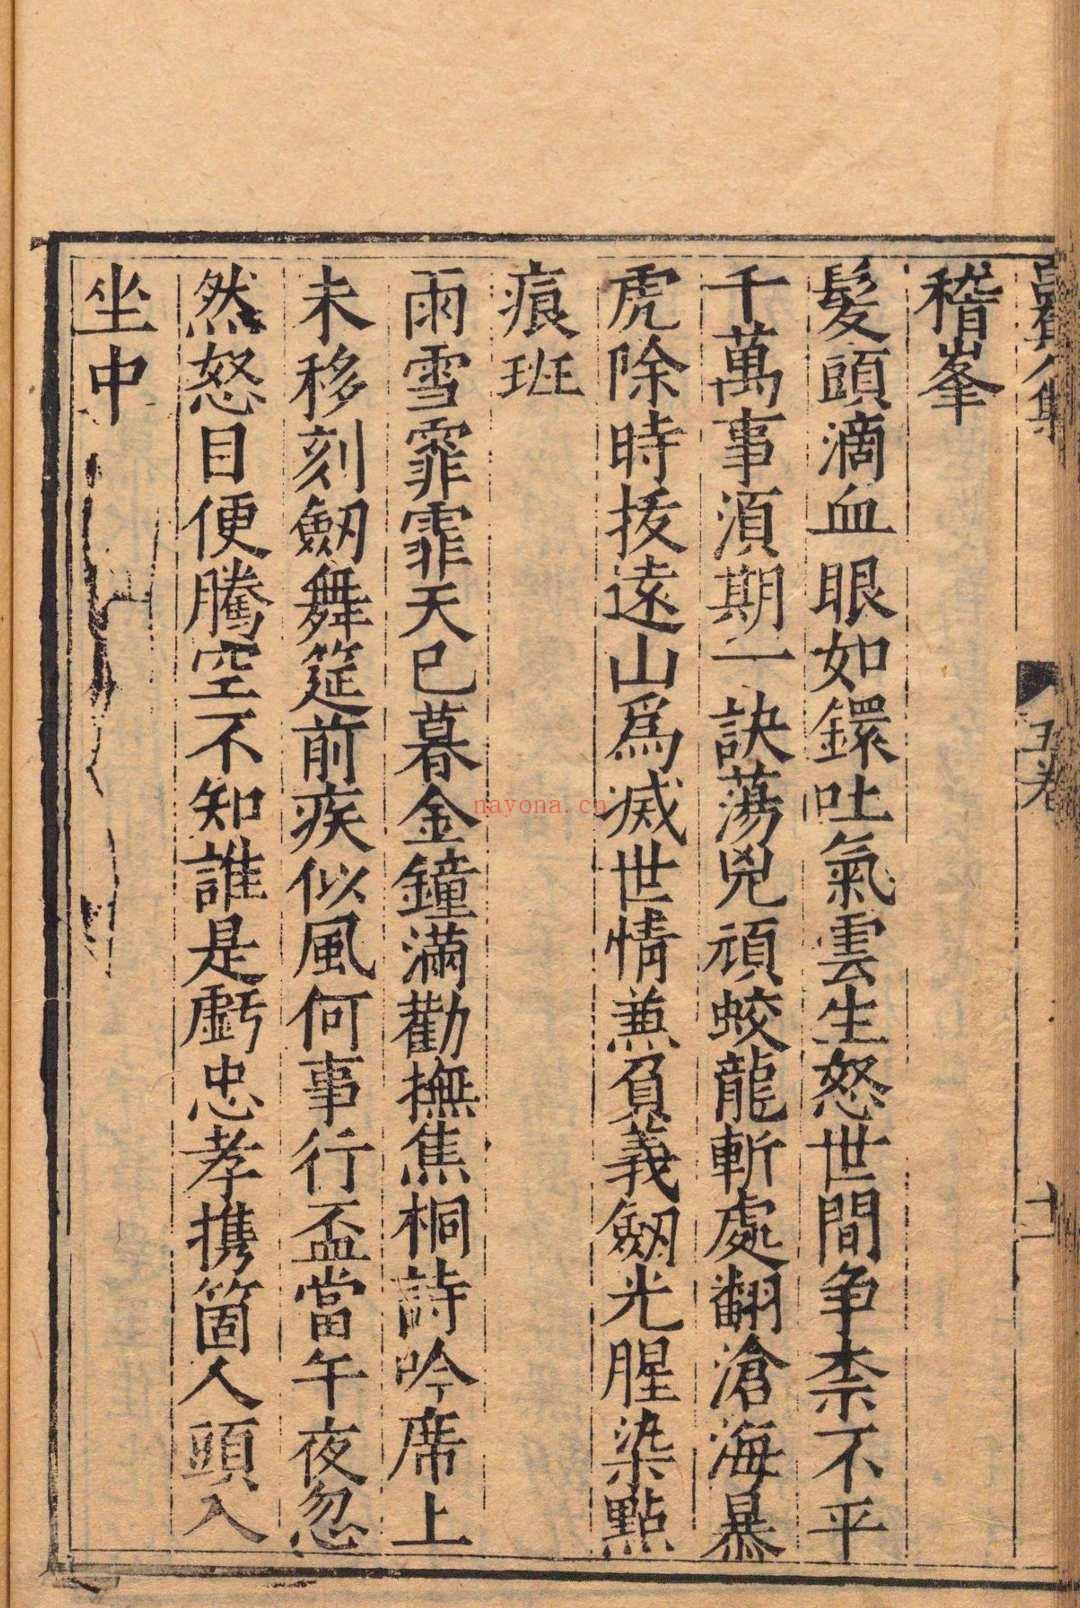 稽峯
髮頭滴血眼如鐶吐氣雲生怒世間争柰不平
千萬事湏期一訣蕩兇頑蛟龍斬處翻滄海暴
虎除時拔遠山爲滅世情兼負義劒光腥染點
痕班
雨雪霏霏天已暮金鐘滿勸撫焦桐詩吟席上
未移刻劒舞筵前疾似風何事行盃當午夜忽
然怒目便騰空不知誰是虧忠孝携箇人頭入
坐中
nayona.cn